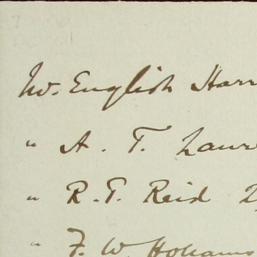 Mr. English Harr
" A. T. Lawr
" R. T. Reid 2
" F. W. Hollams